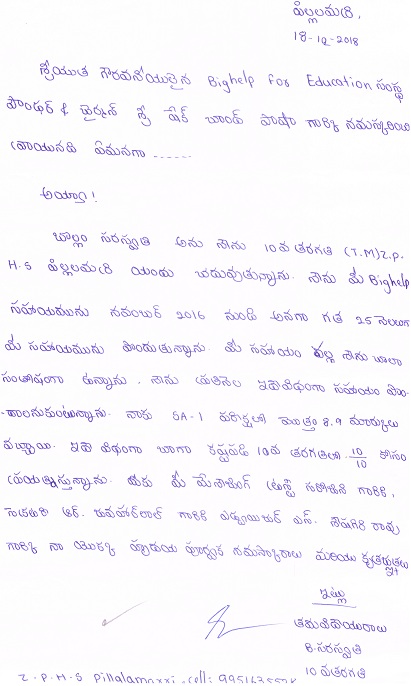 పిల్లలమర్రి,
18-12-2018
శ్రీయుత గౌరవనీయులైన Bighelp For Education సంస్థ
ఫౌండర్ & ఛైర్మన్ శ్రీ షేక్ చాంద్ పాషా గారికి నమస్కరించి
వ్రాయునది ఏమనగా ......
అయ్యా!
బొల్లం సరస్వతి అను నేను 10వ తరగతి (T.M) Z.P.
H.S పిల్లలమర్రి యందు చదువుతున్నాను. నేను మీ Bighelp
సహాయమును నవంబర్ 2016 నుండి అనగా గత 25 నెలలుగా
మీ సహాయమును పొందుతున్నాను. మీ సహాయం వల్ల నేను చాలా
సంతోషంగా ఉన్నాను. నేను ప్రతినెల ఇదేవిధంగా సహాయం పొం-
దాలనుకుంటున్నాను. నాకు SA-1 పరీక్షలో మొత్తం 8.9 మార్కులు
వచ్చాయి. ఇదే విధంగా బాగా కష్టపడి 10వ తరగతిలో 10/10 కోసం
ప్రయత్నిస్తున్నాను. మీకు మీ మేనేజింగ్ ట్రస్టీ సరోజిని గారికి,
సెక్రటరి ఆర్. జవహర్‌లాల్ గారికి ఎడ్వయిజర్ ఎన్. శేషగిరి రావు
గారికి నా యొక్క హృదయ పూర్వక నమస్కారాలు మరియు కృతజ్ఞతలు
ఇట్లు
తమ విధేయురాలు
B. సరస్వతి
10 వ తరగతి
Z.P.H.S Pillalamarri, cell: